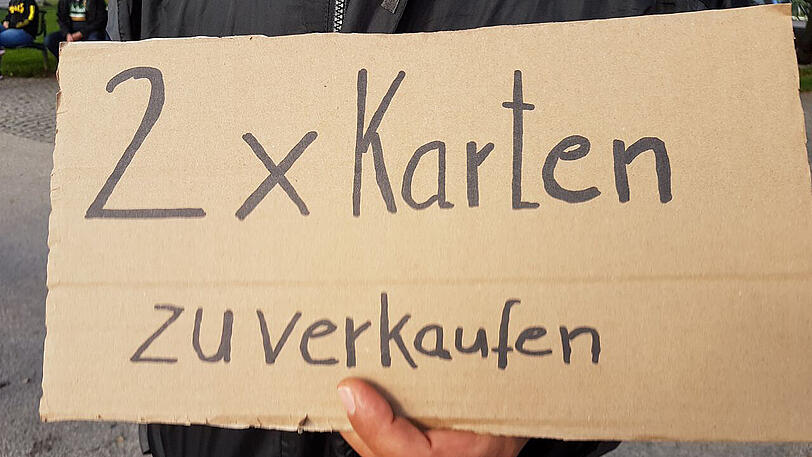 2 x Karten
zu verkaufen